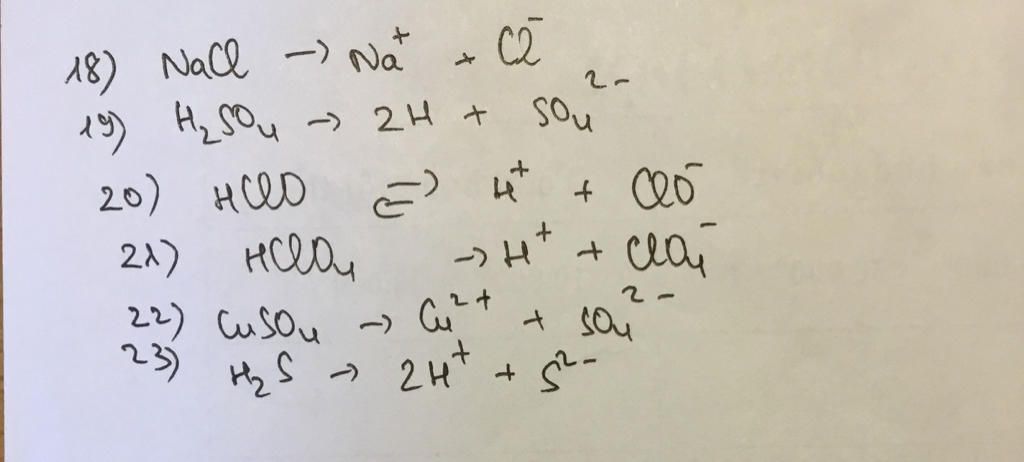 18) NaCl → Na⁺ + Cl⁻
19) H₂SO₄ → 2H + SO₄²⁻
20) HClO ⇌ H⁺ + ClO⁻
21) HClO₄ → H⁺ + ClO₄⁻
22) CuSO₄ → Cu²⁺ + SO₄²⁻
23) H₂S → 2H⁺ + S²⁻